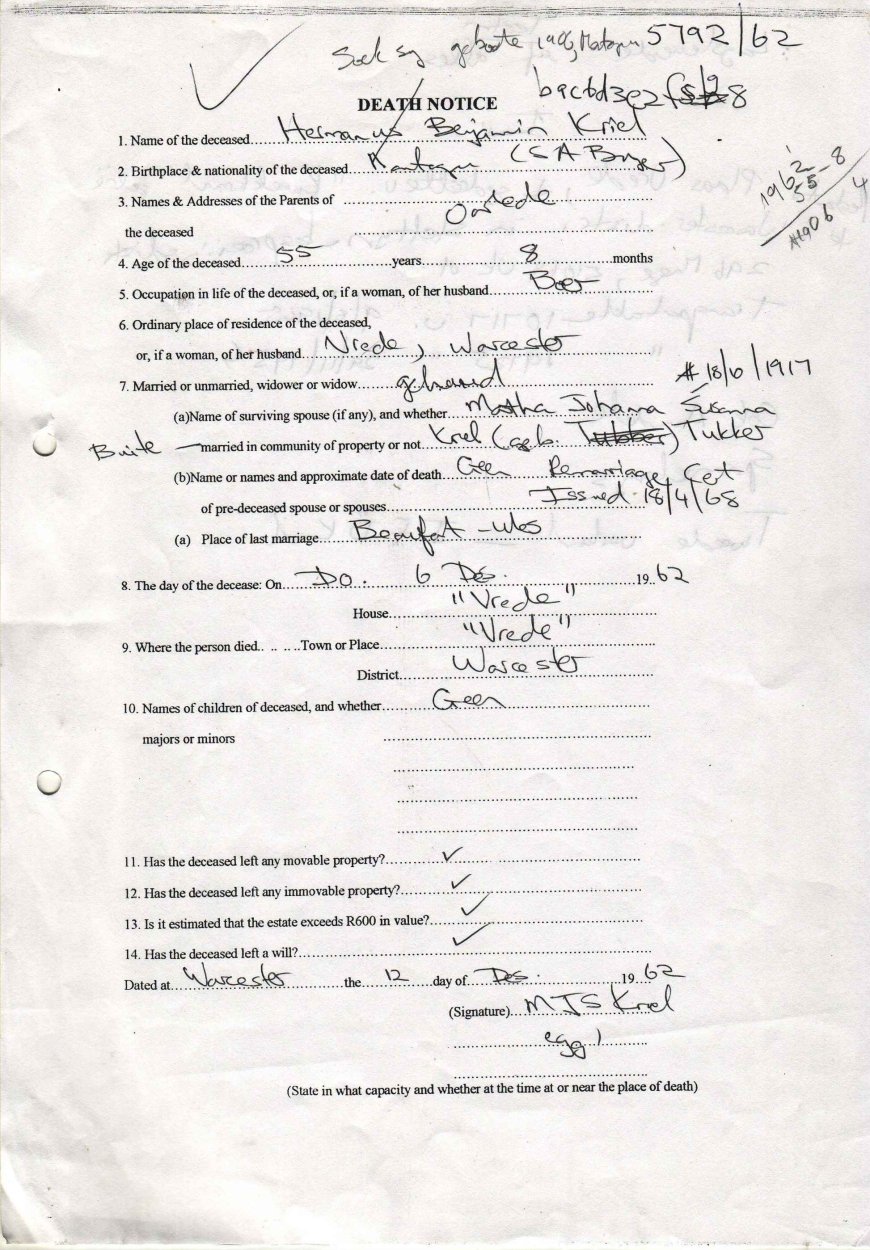 Soek sy geboorte 1906, 5792/62
bacbd3e2f 8
DEATH NOTICE
1. Name of the deceased Hermanus Benjamin Kriel
2. Birthplace & nationality of the deceased (SA Burger)
1962-8
55
4
1906
3. Names & Addresses of the Parents of
Oorlede
the deceased
4. Age of the deceased 55 years 8 months
5. Occupation in life of the deceased, or, if a woman, of her husband Boer
6. Ordinary place of residence of the deceased,
or, if a woman, of her husband Vrede, Worcester
7. Married or unmarried, widower or widow getroud # 18/6/1917
(a)Name of surviving spouse (if any), and whether Martha Johanna Susanna
Buite — married in community of property or not Kriel (geb. Tubber) Tukker
(b)Name or names and approximate date of death Geen Remarriage Cert
of pre-deceased spouse or spouses Issued 18/4/68
(a) Place of last marriage Beaufort-Wes
8. The day of the decease: On Do. 6 Des. 19 62
House "Vrede"
9. Where the person died.. .. .. ..Town or Place "Vrede"
District Worcester
10. Names of children of deceased, and whether Geen
majors or minors
11. Has the deceased left any movable property? ✓
12. Has the deceased left any immovable property? ✓
13. Is it estimated that the estate exceeds R600 in value? ✓
14. Has the deceased left a will? ✓
Dated at Worcester the 12 day of Des. 19 62
(Signature) MJS Kriel
egg)
(State in what capacity and whether at the time at or near the place of death)